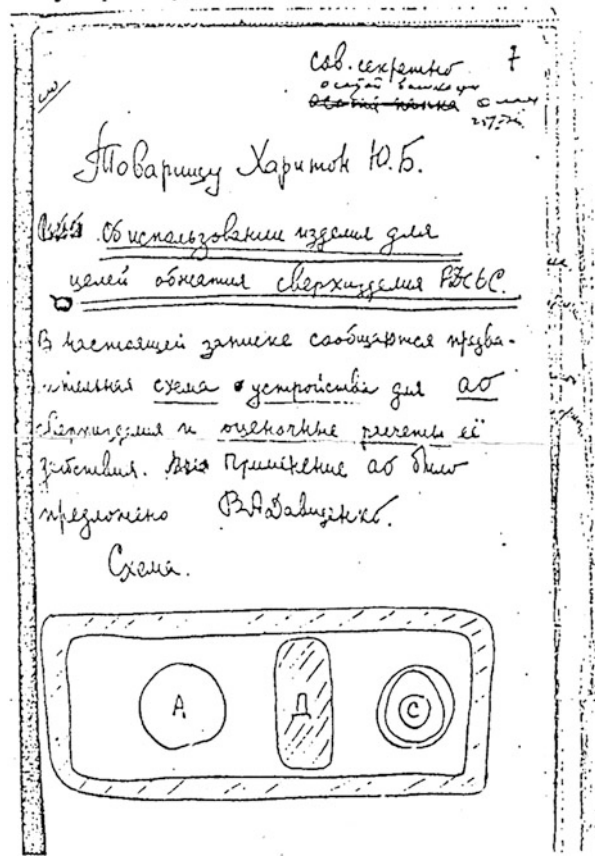 сов. секретно 7
особая папка
Товарищу Харитон Ю.Б.
Об использовании изделия для
целей обжатия сверхизделия РДС6С.
В настоящей записке сообщаются предва-
рительная схема устройства для АО
сверхизделия и оценочные расчеты её
действия. Применение АО было
предложено В.А.Давиденко.
Схема.
А Д С